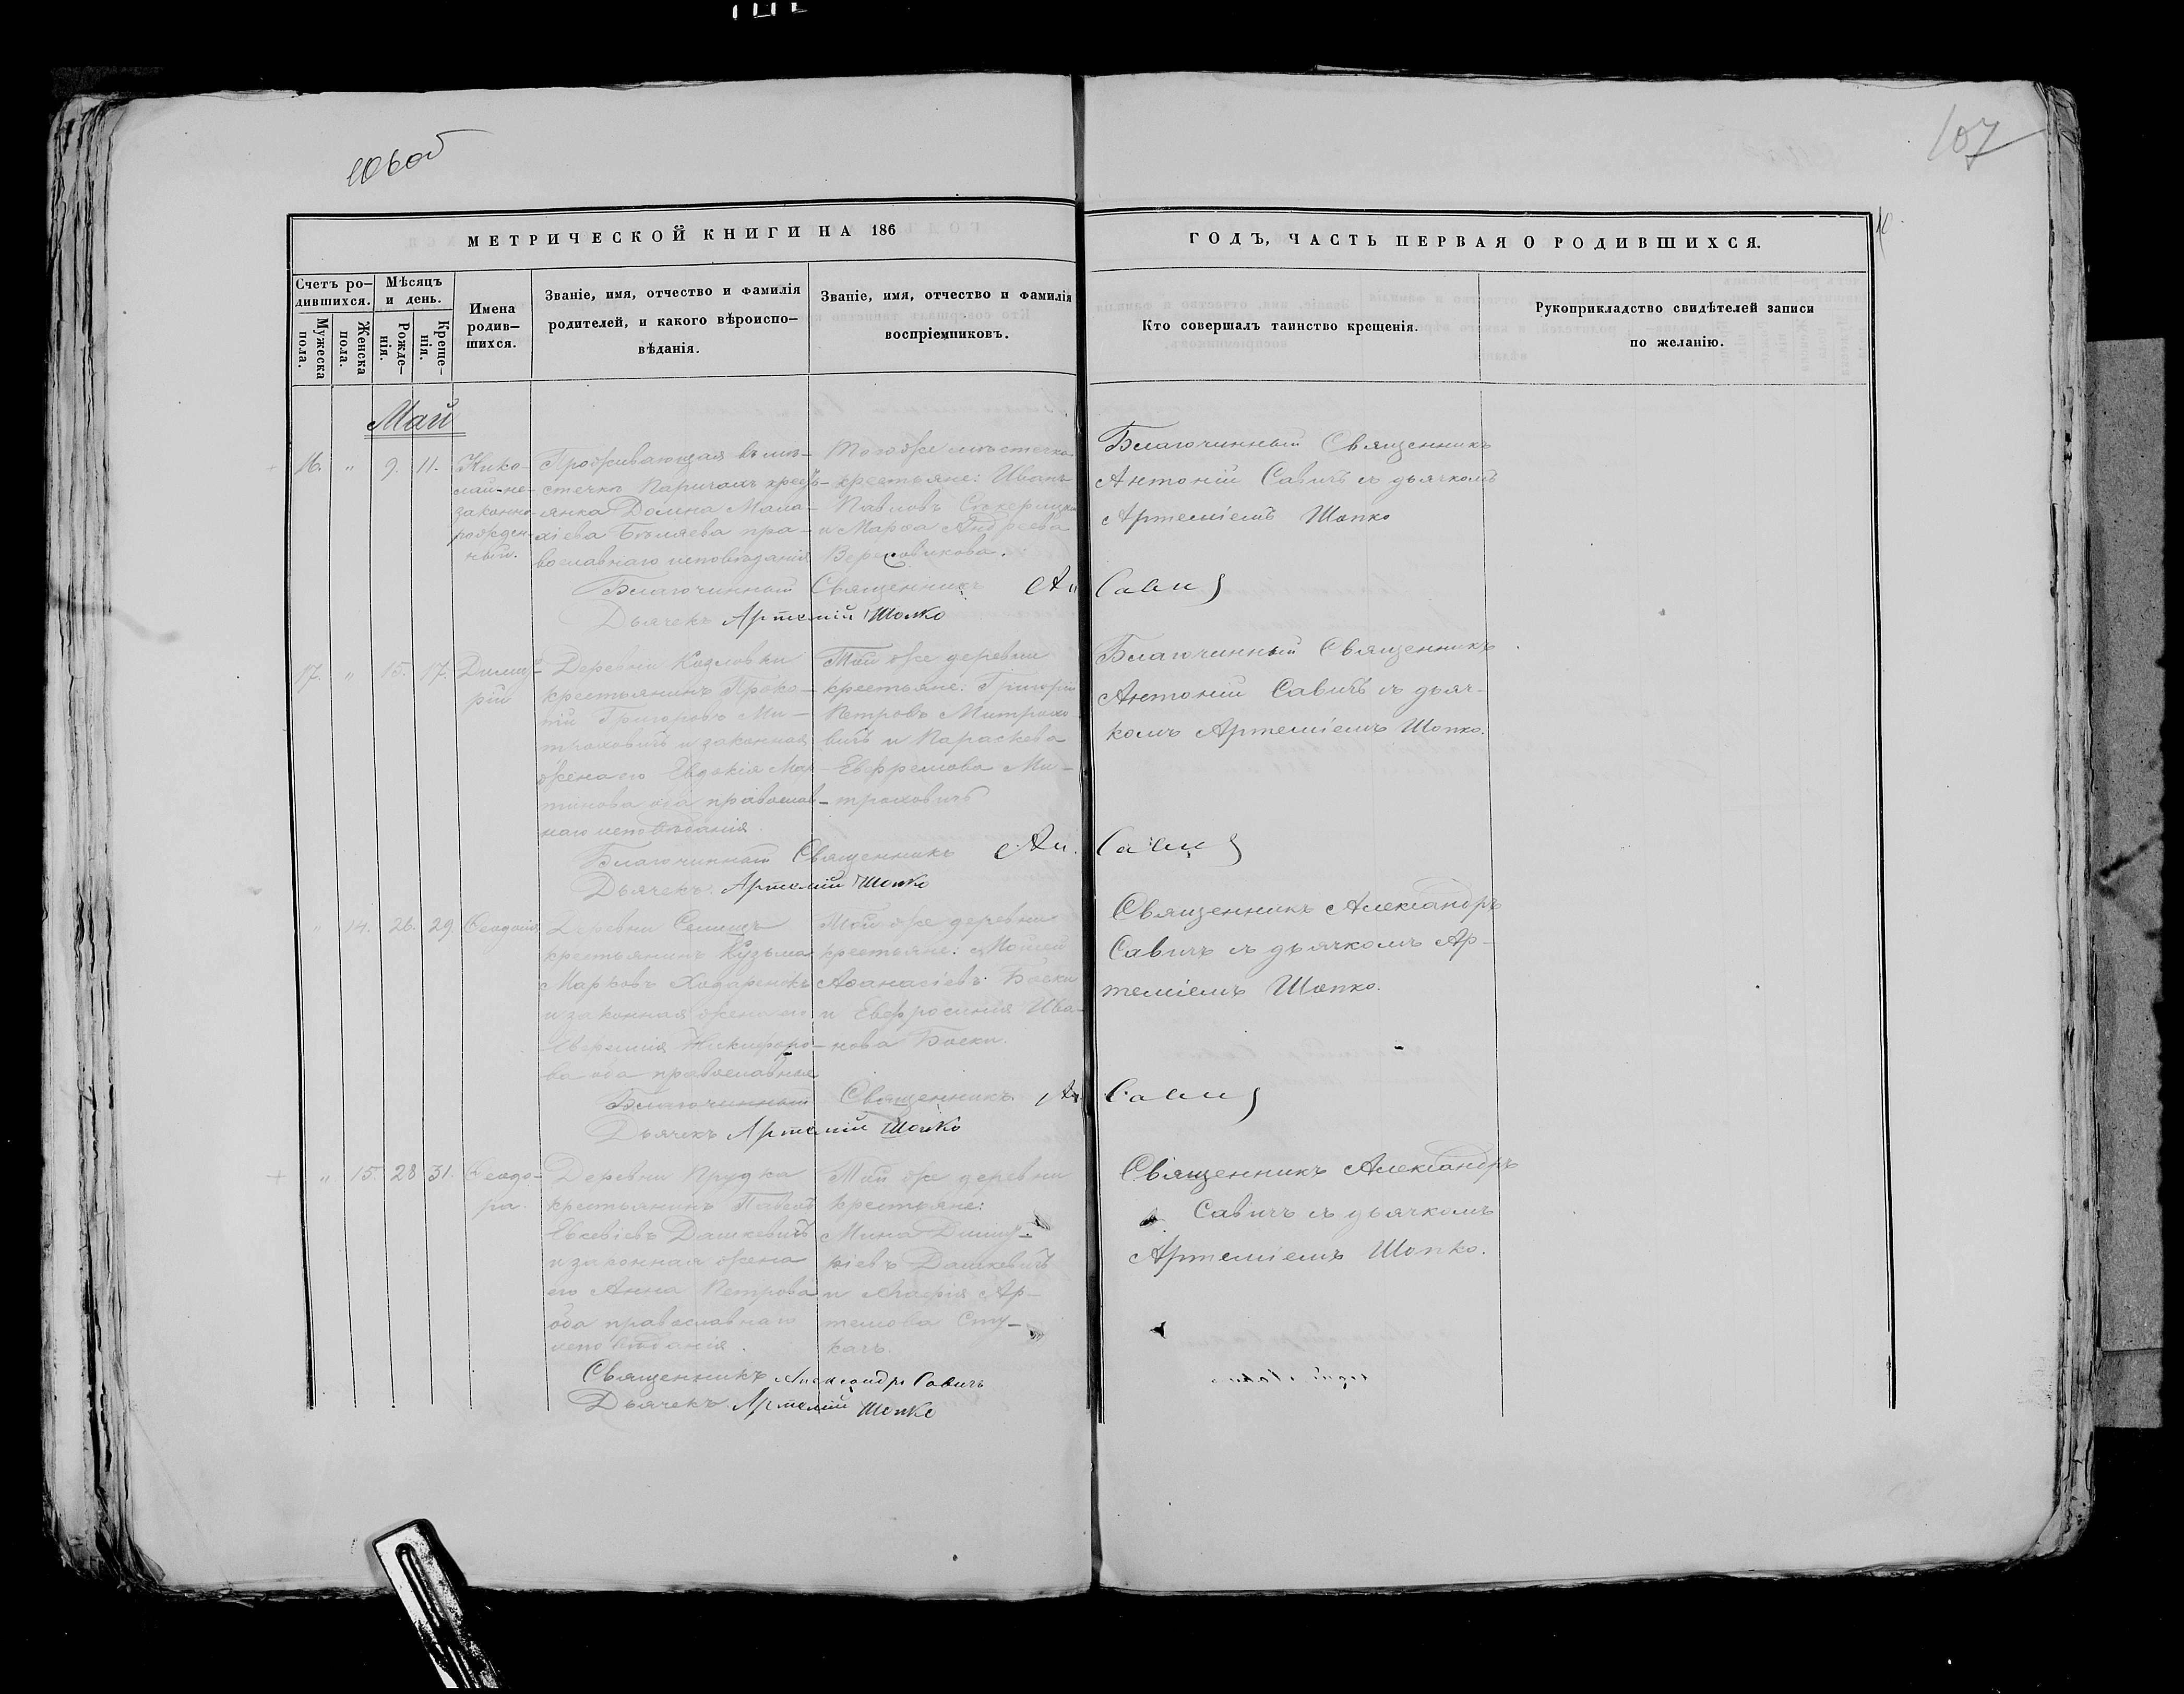 106об
107
МЕТРИЧЕСКОЙ КНИГИ НА 186
ГОДЪ, ЧАСТЬ ПЕРВАЯ О РОДИВШИХСЯ.
Счетъ ро-
дившихся.
Мужеска
пола.
Женска
пола.
Мѣсяцъ
и день.
Рожде-
нія.
Креще-
нія.
Имена
родив-
шихся.
Званіе, имя, отчество и фамилія
родителей, и какого вѣроиспо-
вѣданія.
Званіе, имя, отчество и фамилія
воспріемниковъ.
Кто совершалъ таинство крещенія.
Рукоприкладство свидѣтелей записи
по желанію.
Май
16. " 9. 11.
Нико-
лай-не-
законно-
рожден-
ный.
Проживающая въ мѣ-
стечкѣ Паричахъ крест-
янка Домна Мала-
хіева Бѣляева пра-
вославнаго исповѣданія
Тогоже мѣстечка
крестьяне: Иванъ
Павловъ
и Марѳа Андреева
Благочинный Священникъ
Антоній Савичъ съ дьячкомъ
Артеміемъ Шопко
Благочинный Священникъ Ан Савич
Дьячекъ Артемій Шопко
17. " 15. 17.
Димит-
рій
Деревни Козловки
крестьянинъ Проко-
пій Григоровъ Ми-
траховичъ и законная
жена его Евдокія Мар-
тинова оба православ-
наго исповѣданія.
Той же деревни
крестьяне: Григорій
Петровъ Митрахо-
вичъ и Параскева
Ефремова Ми-
траховичъ
Благочинный Священникъ
Антоній Савичъ съ дьяч-
комъ Артеміемъ Шопко.
Благочинный Священникъ Ан. Савич
Дьячекъ Артемій Шопко
" 14. 26. 29.
Ѳеодосія
Деревни Селищъ
крестьянинъ Кузьма
Марковъ Ходаренокъ
и законная жена его
Никифоро-
ва оба православные
Той же деревни
крестьяне: Моисей
Аѳанасіевъ
и Евфросинія Ива-
нова
Священникъ Александръ
Савичъ съ дьячкомъ Ар-
теміемъ Шопко.
Благочинный Священникъ Ан Савич
Дьячекъ Артемій Шопко
" 15. 28 31.
Ѳеодо-
ра.
Деревни Прудка
крестьянинъ Павелъ
Евсевіевъ Дашкевичъ
и законная жена
его Анна Петрова
оба православнаго
исповѣданія.
Той же деревни
крестьяне:
Мина Димит-
ріевъ Дашкевичъ
и Агафія Ар-
темова Сту-
качъ.
Священникъ Александръ
Савичъ съ дьячкомъ
Артеміемъ Шопко.
Священникъ Александръ Савичъ
Дьячекъ Артемій Шопко